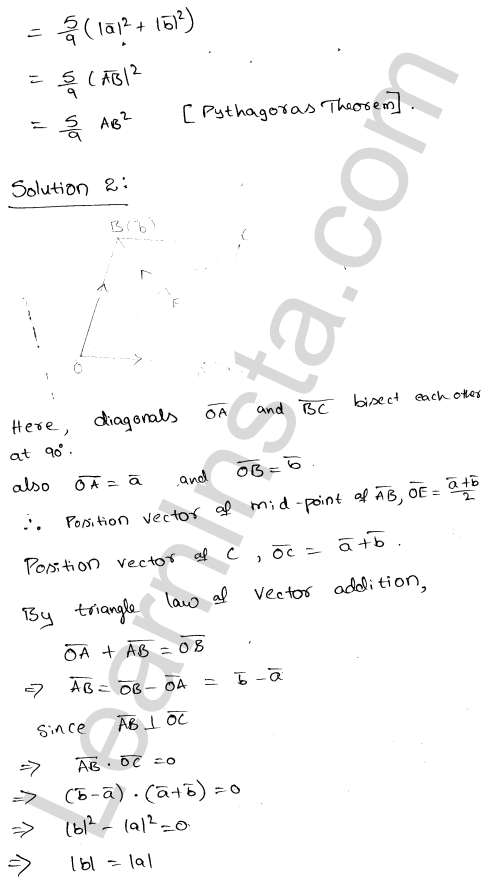 = 5/9 (|a̅|² + |b̅|²)
= 5/9 (A̅B̅|²
= 5/9 AB² [Pythagoras Theorem].
Solution 2:
B(b̅)
C
E
O
Here, diagonals O̅A̅ and B̅C̅ bisect each other
at 90°.
also O̅A̅ = a̅ and O̅B̅ = b̅.
∴ Position vector of mid-point of A̅B̅, O̅E̅ = (a̅+b̅)/2
Position vector of C, O̅C̅ = a̅+b̅.
By triangle law of vector addition,
O̅A̅ + A̅B̅ = O̅B̅
⇒ A̅B̅ = O̅B̅ - O̅A̅ = b̅ - a̅
since A̅B̅ ⊥ O̅C̅
⇒ A̅B̅ · O̅C̅ = 0
⇒ (b̅-a̅) · (a̅+b̅) = 0
⇒ |b|² - |a|² = 0.
⇒ |b| = |a|
LearnInsta.com